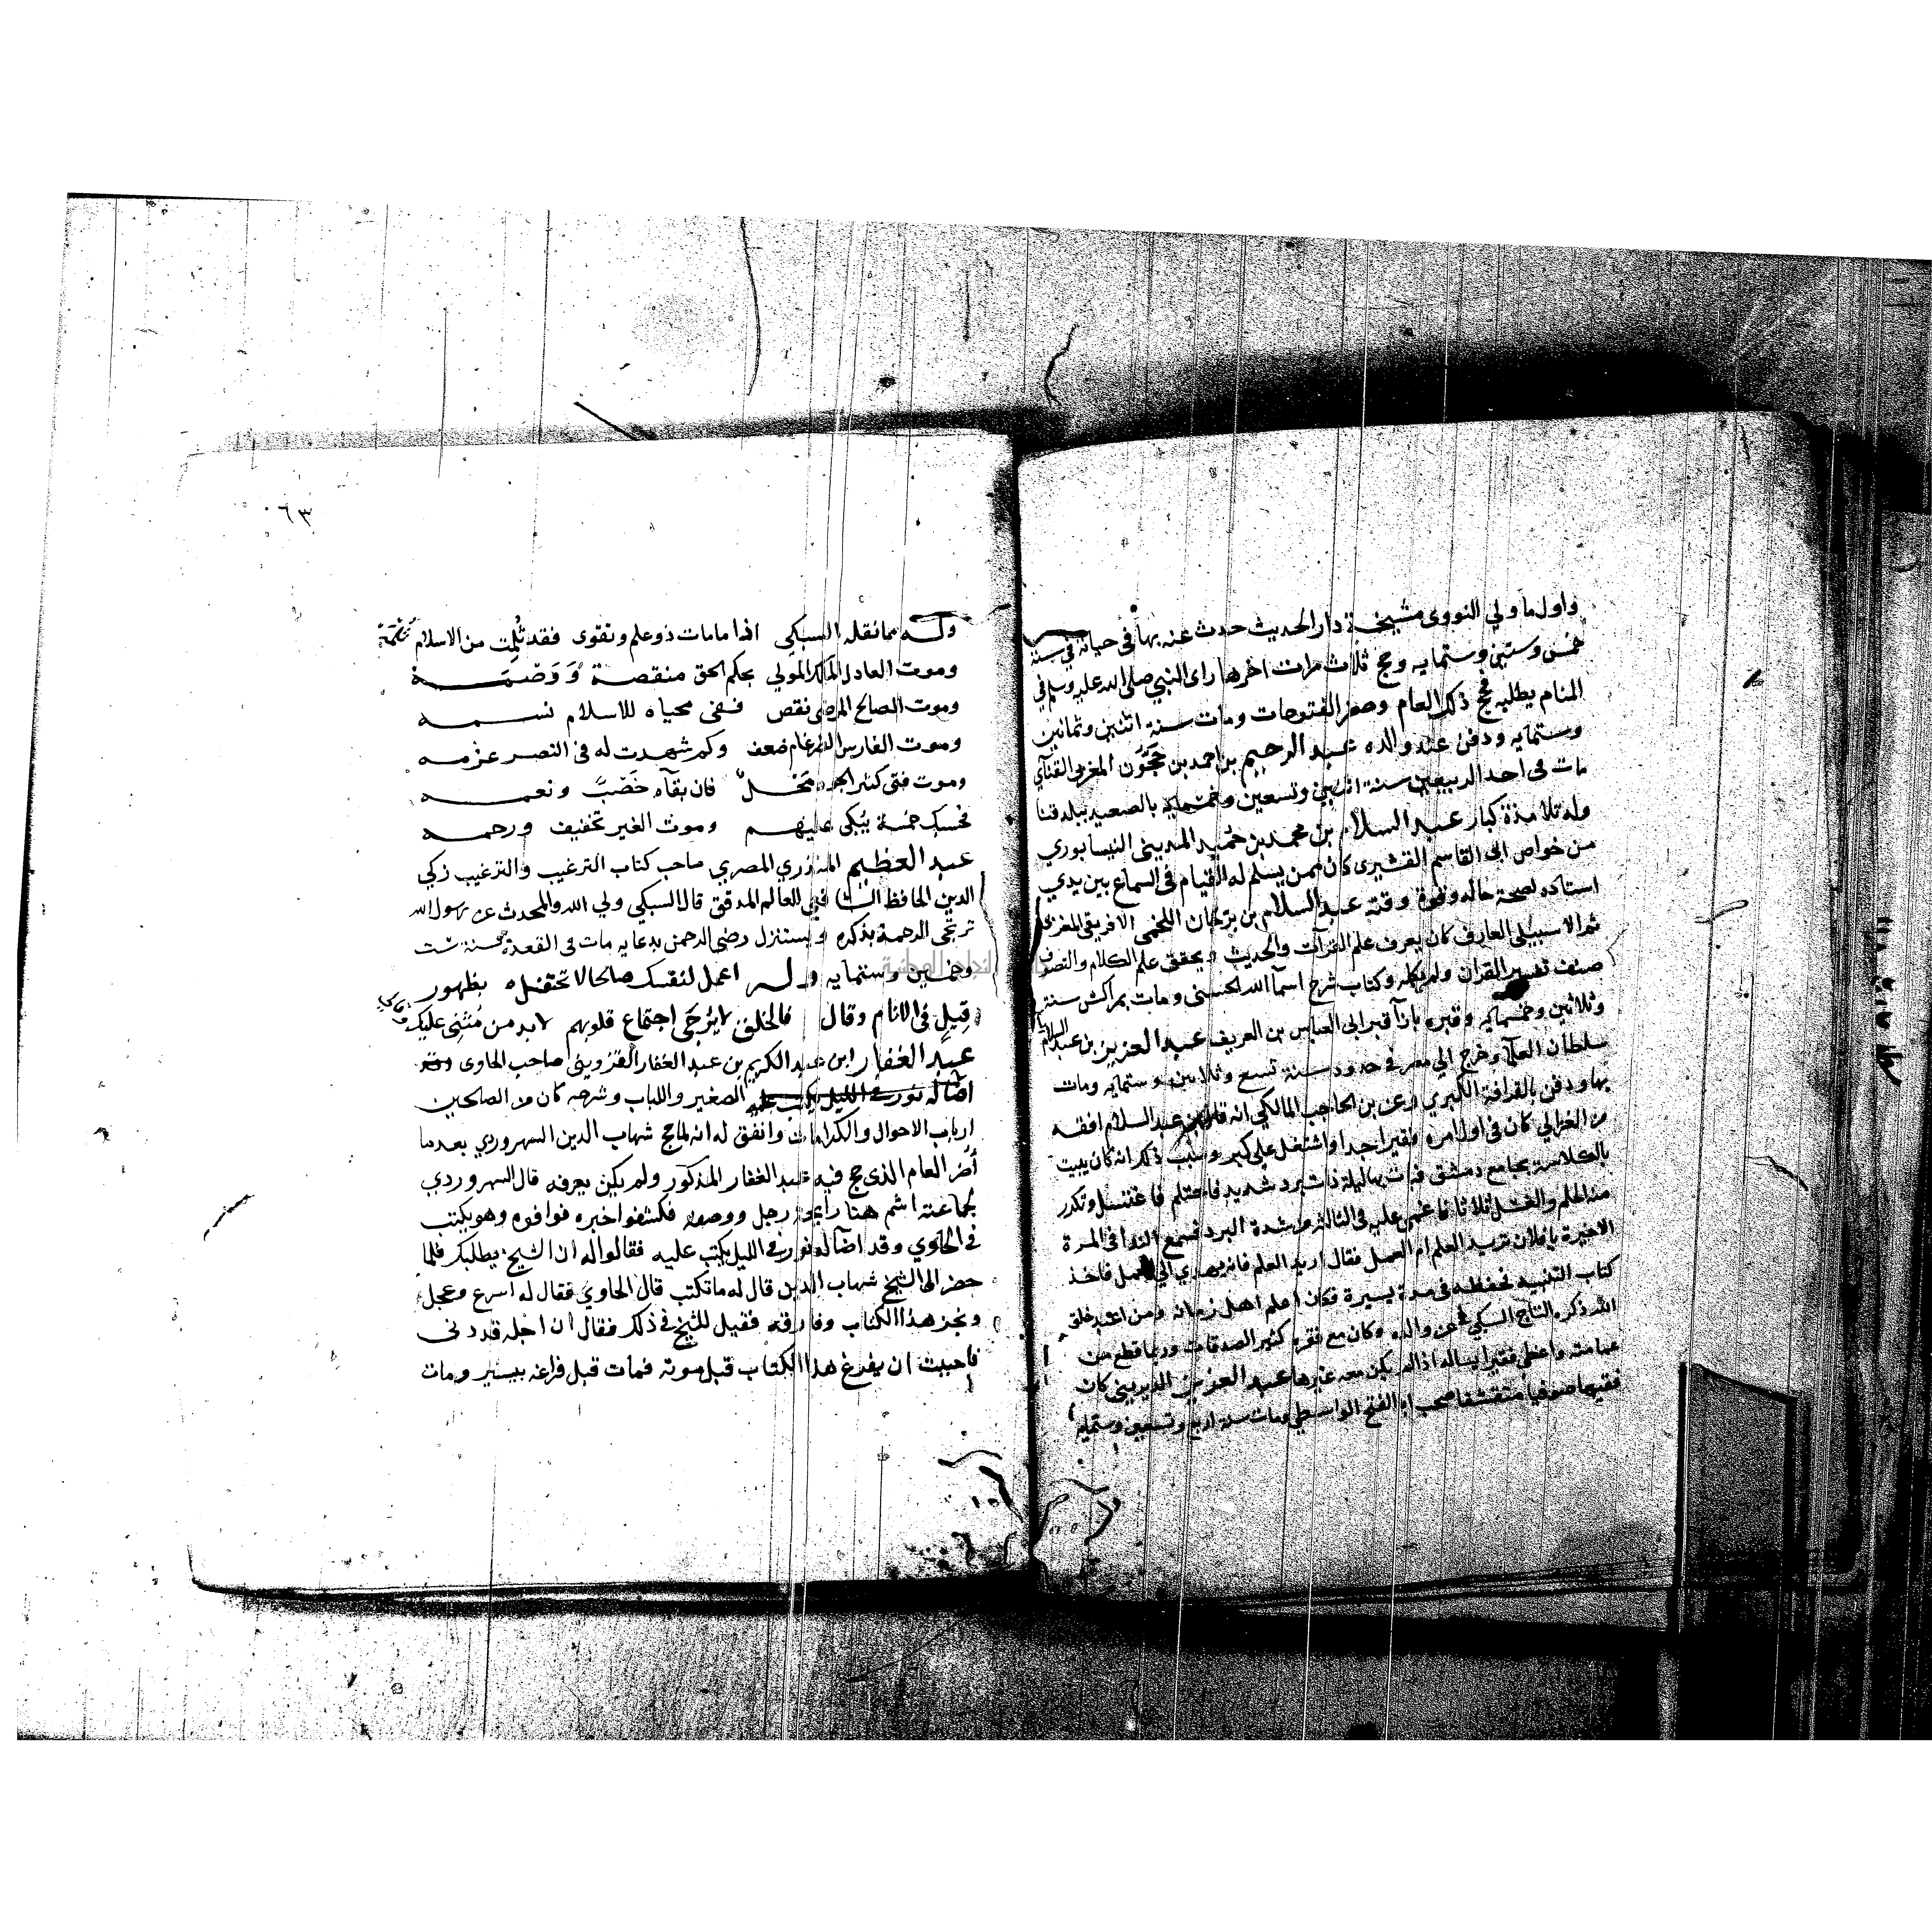 واول ما ولي النووى مشيخة دار الحديث حدث عنه بها فى حياته في سنة
خمس وستين وستمايه وحج ثلاث مرات اخرها راى النبي صلى الله عليه وسلم في
المنام يطلبه فحج ذلك العام وحضر الفتوحات ومات سنة اثنين وثمانين
وستمايه ودفن عند والده عبد الرحيم بن احمد بن حجون المغربي القنآى
مات فى احد الربيعين سنة اثنين وتسعين وخمسمايه بالصعيد ببلد قنا
وله تلامذة كبار عبد السلام بن محمد بن حميد المدينى النيسابوري
من خواص ابى القاسم القشيرى كان ممن يسلم له القيام فى السماع بين يدي
استاده لصحة حاله وقوة وقته عبد السلام بن برجان اللخمى الافريقى المغربى
ثم الاسبيلى العارف كان يعرف علم القرآت والحديث ويحقق علم الكلام والتصوف
صنف تفسير القران ولم يكمله وكتاب شرح اسمآ الله الحسنى ومات بمراكش سنة
وثلاثين وخمسمايه وقبره بازآ قبر ابى العباس بن العريف عبد العزيز بن عبد السلام
سلطان العلمآ وخرج الي مصر في حدود سنة تسع وثلاثين وستمايه ومات
بها ودفن بالقرافة الكبري وعن بن الحاجب المالكي انه قال بن عبد السلام افقه
من الغزالي كان فى اول امره فقيرا جدا واشتغل على كبر وسبب ذلك انه كان يبيت
بالكلاسة بجامع دمشق فبات بها ليلة ذات برد شديد فاحتلم فاغتسل وتكرر
منه الحلم والغسل ثلاثا فاغمى عليه فى الثالثة من شدة البرد فسمع الندا فى المرة
الاخيرة يا فلان تريد العلم ام العمل فقال اريد العلم فانه يهدي الى العمل فاخذ
كتاب التنبيه فحفظه فى مدة يسيرة فكان اعلم اهل زمانه ومن اعبد خلق
الله ذكره التاج السبكي عن والده وكان مع فقره كثير الصدقات وربما قطع من
عمامته واعطى فقيرا يساله اذا لم يكن معه غيرها عبد العزيز الديرينى كان
فقيها صوفيا متقشفا صحب ابو الفتح الواسطي ومات سنة اربع وتسعين وستمايه
٠٦٣
وله مما نقله السبكي اذا ما مات ذو علم وتقوى فقد ثلمت من الاسلام ثلمة
وموت العادل الملك المولي بحكم الحق منقصة ووصمة
وموت الصالح المرضى نقص ففى محياه للاسلام نسمه
وموت الفارس الضرغام ضعف وكم شهدت له فى النصر عزمه
وموت فتى كثير الجود محل فان بقآه خصب ونعمه
فحسبك خمسة يبكى عليهم وموت الغير تخفيف ورحمه
عبد العظيم المنذري المصري صاحب كتاب الترغيب والترغيب زكي
الدين الحافظ الشافعى العالم المدقق قال السبكي ولي الله والمحدث عن رسول الله
ترتجى الرحمة بذكره ويستنزل رضى الرحمن بدعايه مات فى القعدة سنة ست
وخمسين وستمايه وله اعمل لنفسك صالحا لا تحتفل بظهور
قيل فى الانام وقال فالخلق لا يرجى اجتماع قلوبهم لا بد من مثنى عليك وقالي
عبد الغفار ابن عبد الكريم بن عبد الغفار القزوينى صاحب الحاوى
اضآ له نور فى الليل يكتب عليه الصغير واللباب وشرحه كان من الصالحين
ارباب الاحوال والكرامات واتفق له انه لما حج شهاب الدين السهروردي بعد ما
العام الذى حج فيه عبد الغفار المذكور ولم يكن يعرفه قال السهروردي
لجماعته اشم هنا رايحة رجل ووصفه فكشفوا خبره فوافوه وهو يكتب
فى الحاوي وقد اضآ له نور فى الليل يكتب عليه فقالوا له ان الشيخ يطلبك فلما
حضر الى الشيخ شهاب الدين قال له ما تكتب قال الحاوي فقال له اسرع وعجل
ونجز هذا الكتاب وفارقه فقيل للشيخ في ذلك فقال ان اجله قد دنى
فاحببت ان يفرغ هذا الكتاب قبل موته فمات قبل فراغه بيسير ومات